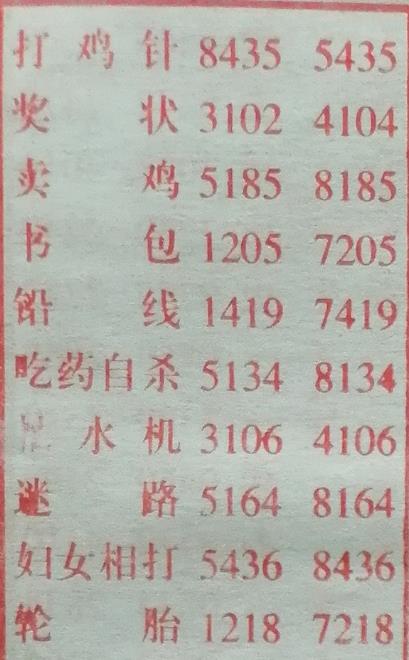 打鸡针 8435 5435
奖状 3102 4104
卖鸡 5185 8185
书包 1205 7205
铅线 1419 7419
吃药自杀 5134 8134
水机 3106 4106
迷路 5164 8164
妇女相打 5436 8436
轮胎 1218 7218